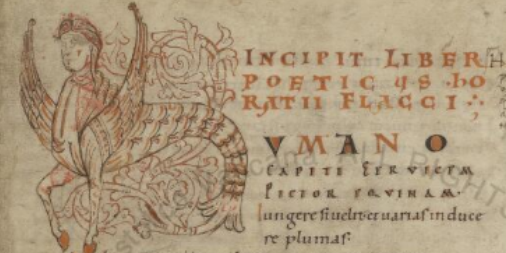 INCIPIT LIBER
POETICUS HO
RATII FLACCI
UMANO
CAPITI CERVICEM
PICTOR EQUINAM.
Iungere si velit et varias induce
re plumas